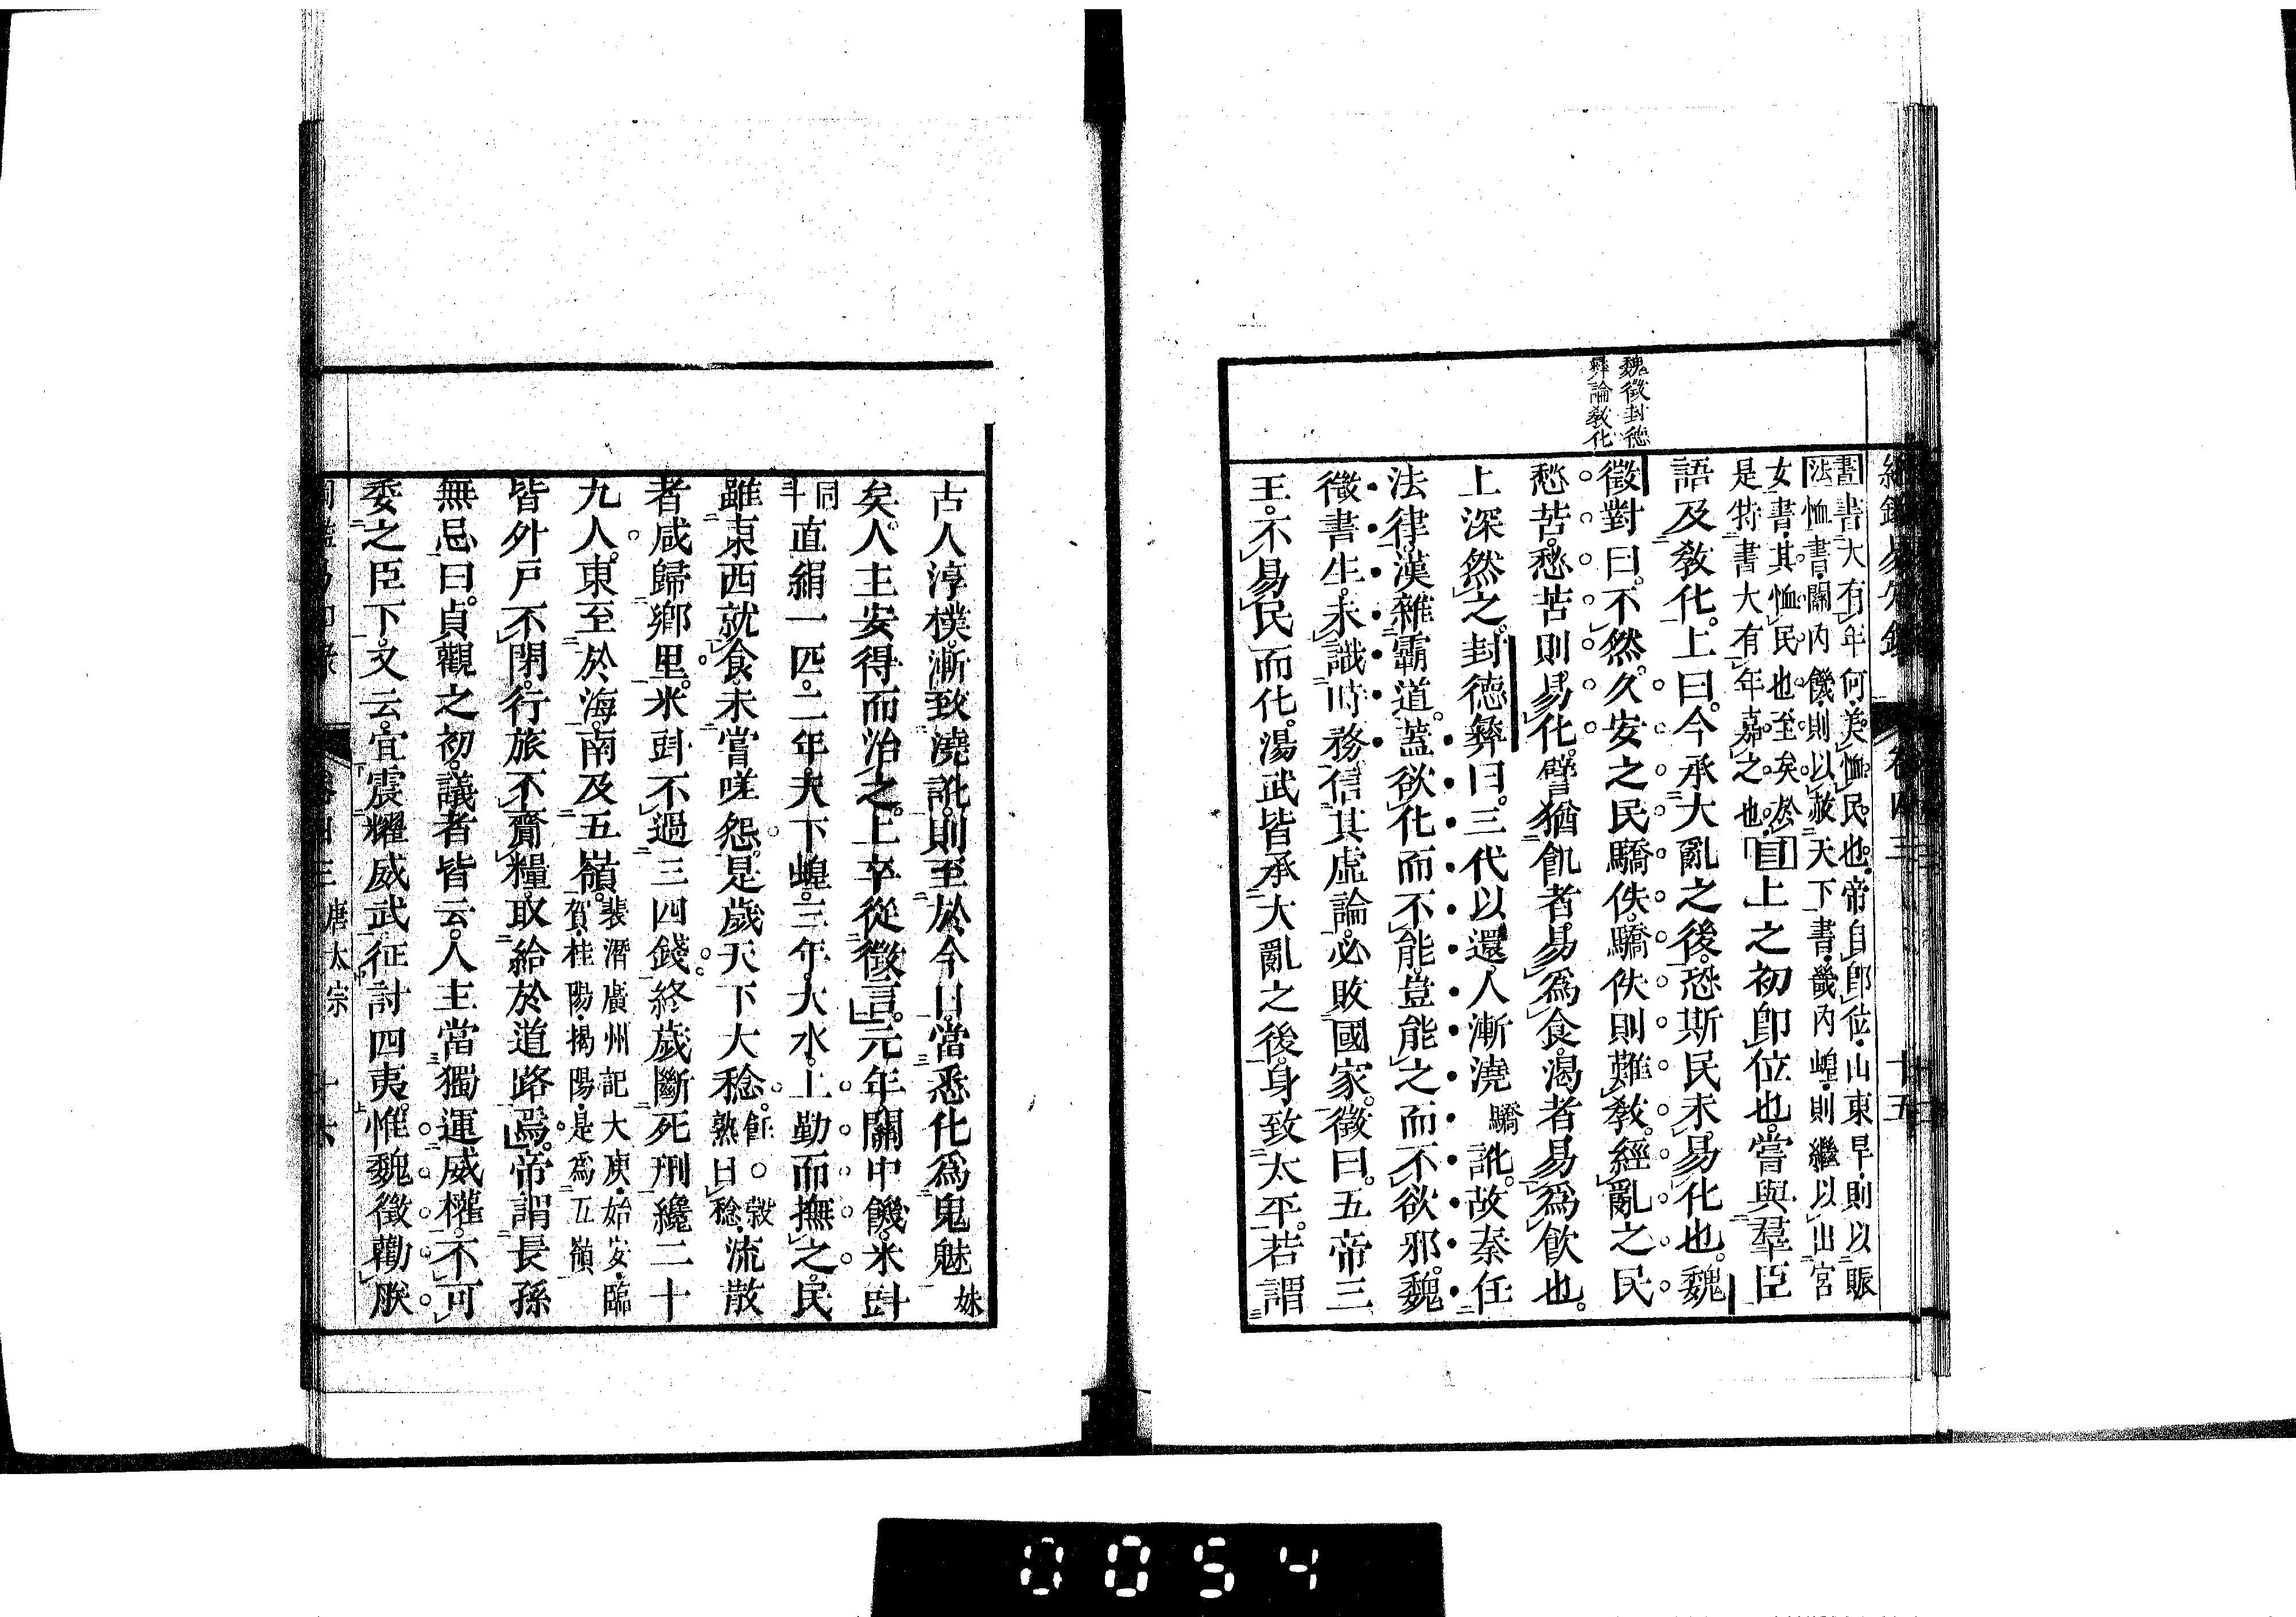 魏徵封德
彝論教化
綱鑑易知錄 卷四三 十五
書書大有年何美恤民也帝自卽位山東旱則以賑
法恤書關內饑則以赦天下書畿內蝗則繼以出宮
女書其恤民也至矣於
是特書大有年嘉之也
目上之初卽位也嘗與羣臣
語及教化上曰今承大亂之後恐斯民未易化也魏
徵對曰不然久安之民驕佚驕佚則難教經亂之民
愁苦愁苦則易化譬猶飢者易爲食渴者易爲飮也
上深然之封德彝曰三代以還人漸澆驕訛故秦任
法律漢雜霸道蓋欲化而不能豈能之而不欲邪魏
徵書生未識時務信其虛論必敗國家徵曰五帝三
王不易民而化湯武皆承大亂之後身致太平若謂
古人淳樸漸致澆訛則至於今日當悉化爲鬼魅妹
矣人主安得而治之上卒從徵言元年關中饑米㪷
同
斗
直絹一匹二年天下蝗三年大水上勤而撫之民
雖東西就食未嘗嗟怨是歲天下大稔
飪○穀
熟曰稔
流散
者咸歸鄉里米㪷不過三四錢終歲斷死刑纔二十
九人東至於海南及五嶺
裴潛廣州記大庾始安臨
賀桂陽揭陽是爲五嶺
皆外戶不閉行旅不齎糧取給於道路焉帝謂長孫
無忌曰貞觀之初議者皆云人主當獨運威權不可
委之臣下又云宜震耀威武征討四夷惟魏徵勸朕
唐太宗 十六